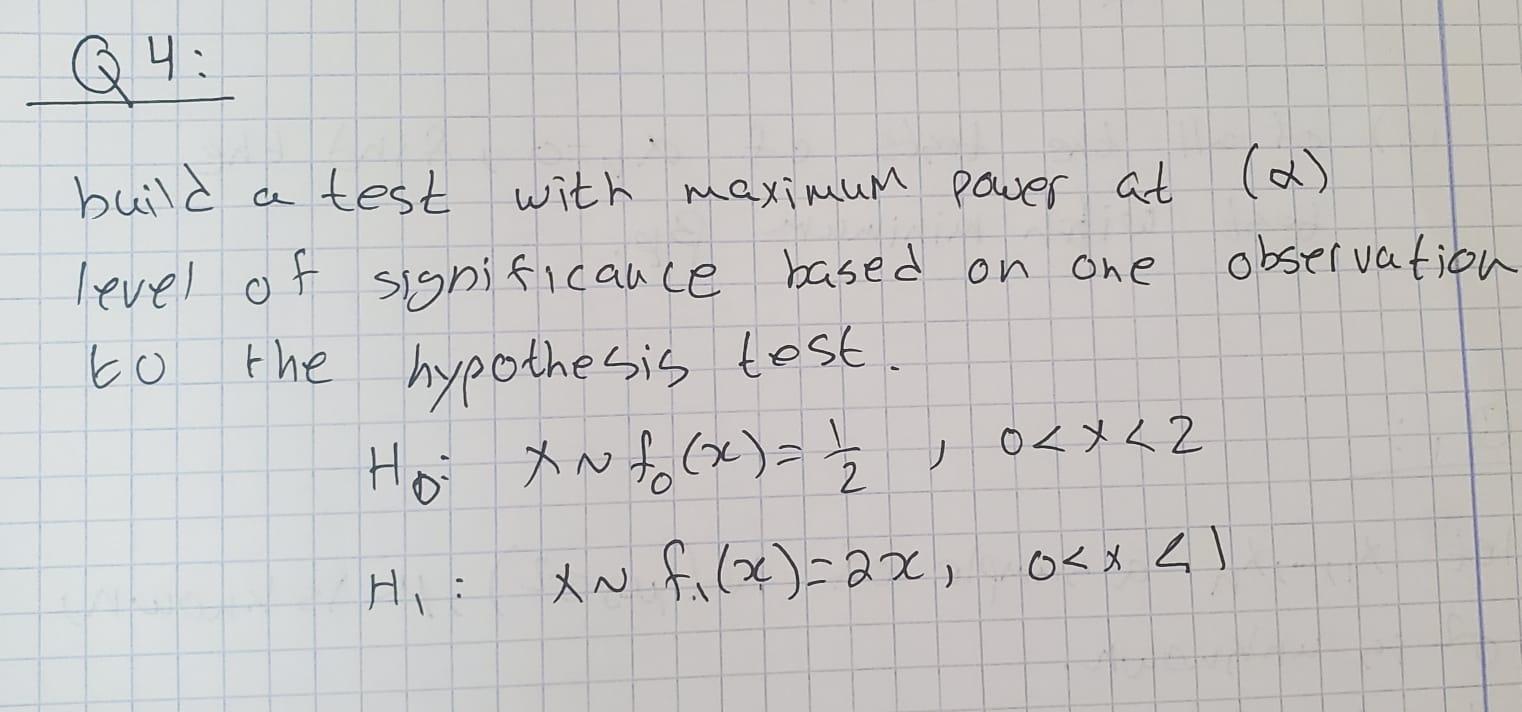 Q 4:
build a test with maximum power at (α)
level of significance based on one observation
to the hypothesis test.
H₀: X ~ f₀(x) = 1/2 , 0 < x < 2
H₁: X ~ f₁(x) = 2x, 0 < x < 1